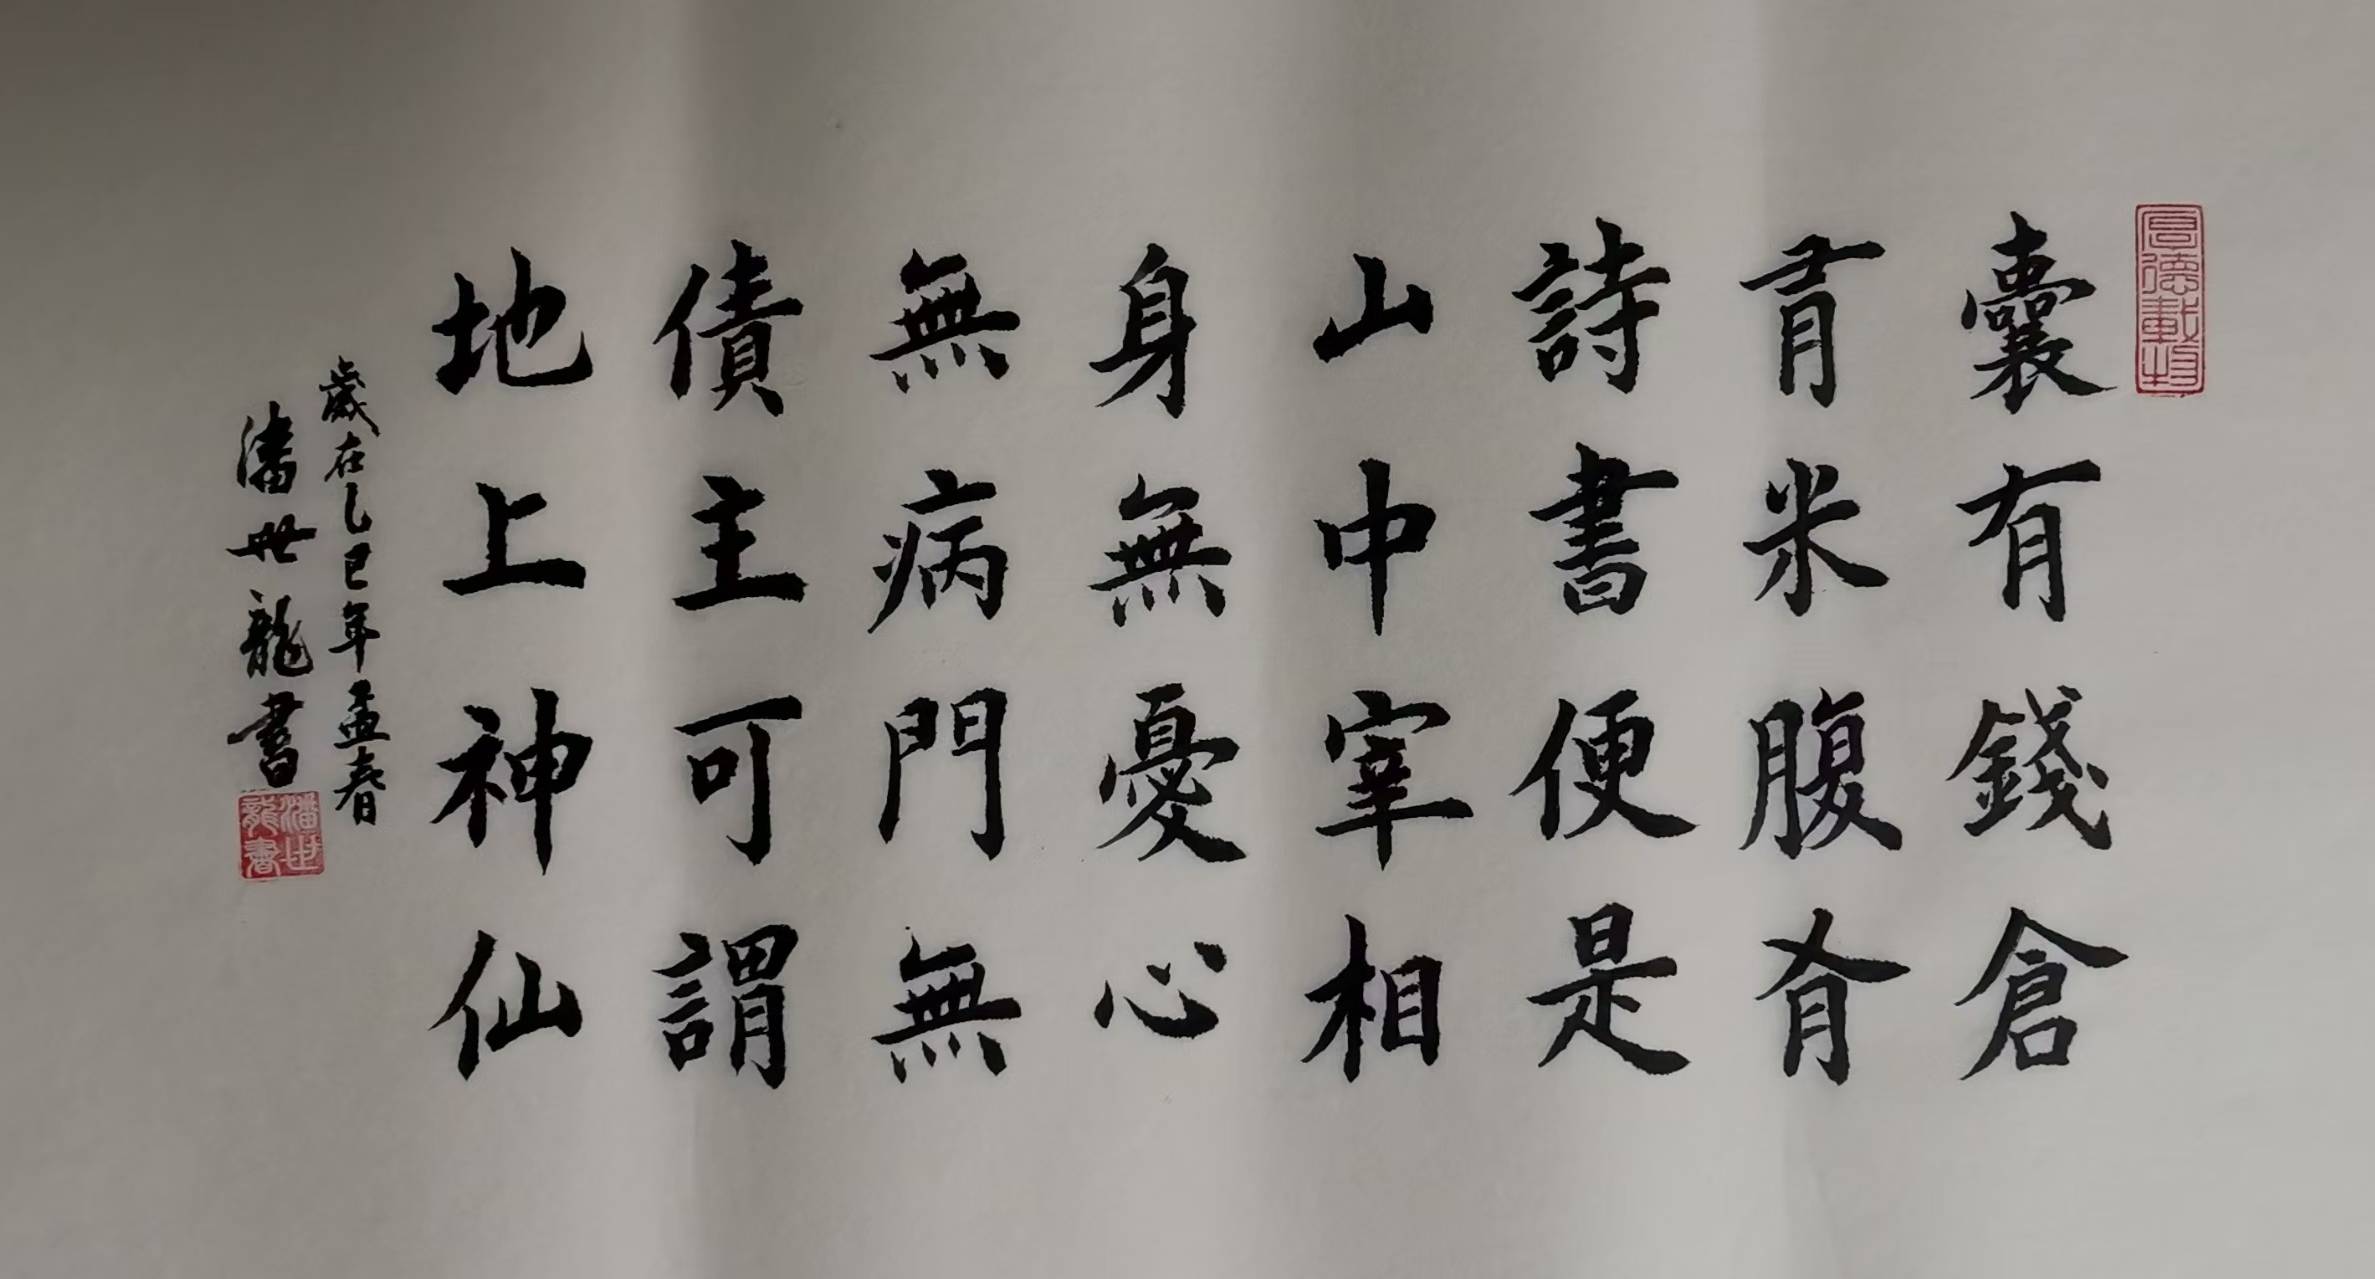 厚德載物
囊有錢倉
有米腹有
詩書便是
山中宰相
身無憂心
無病門無
債主可謂
地上神仙
歲在乙巳年孟春
潘世龍書
潘世龍書